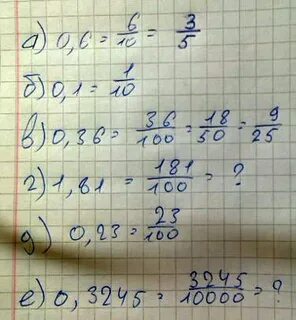 а) 0,6 = 6/10 = 3/5
б) 0,1 = 1/10
в) 0,36 = 36/100 = 18/50 = 9/25
г) 1,81 = 181/100 = ?
д) 0,23 = 23/100
е) 0,3245 = 3245/10000 = ?